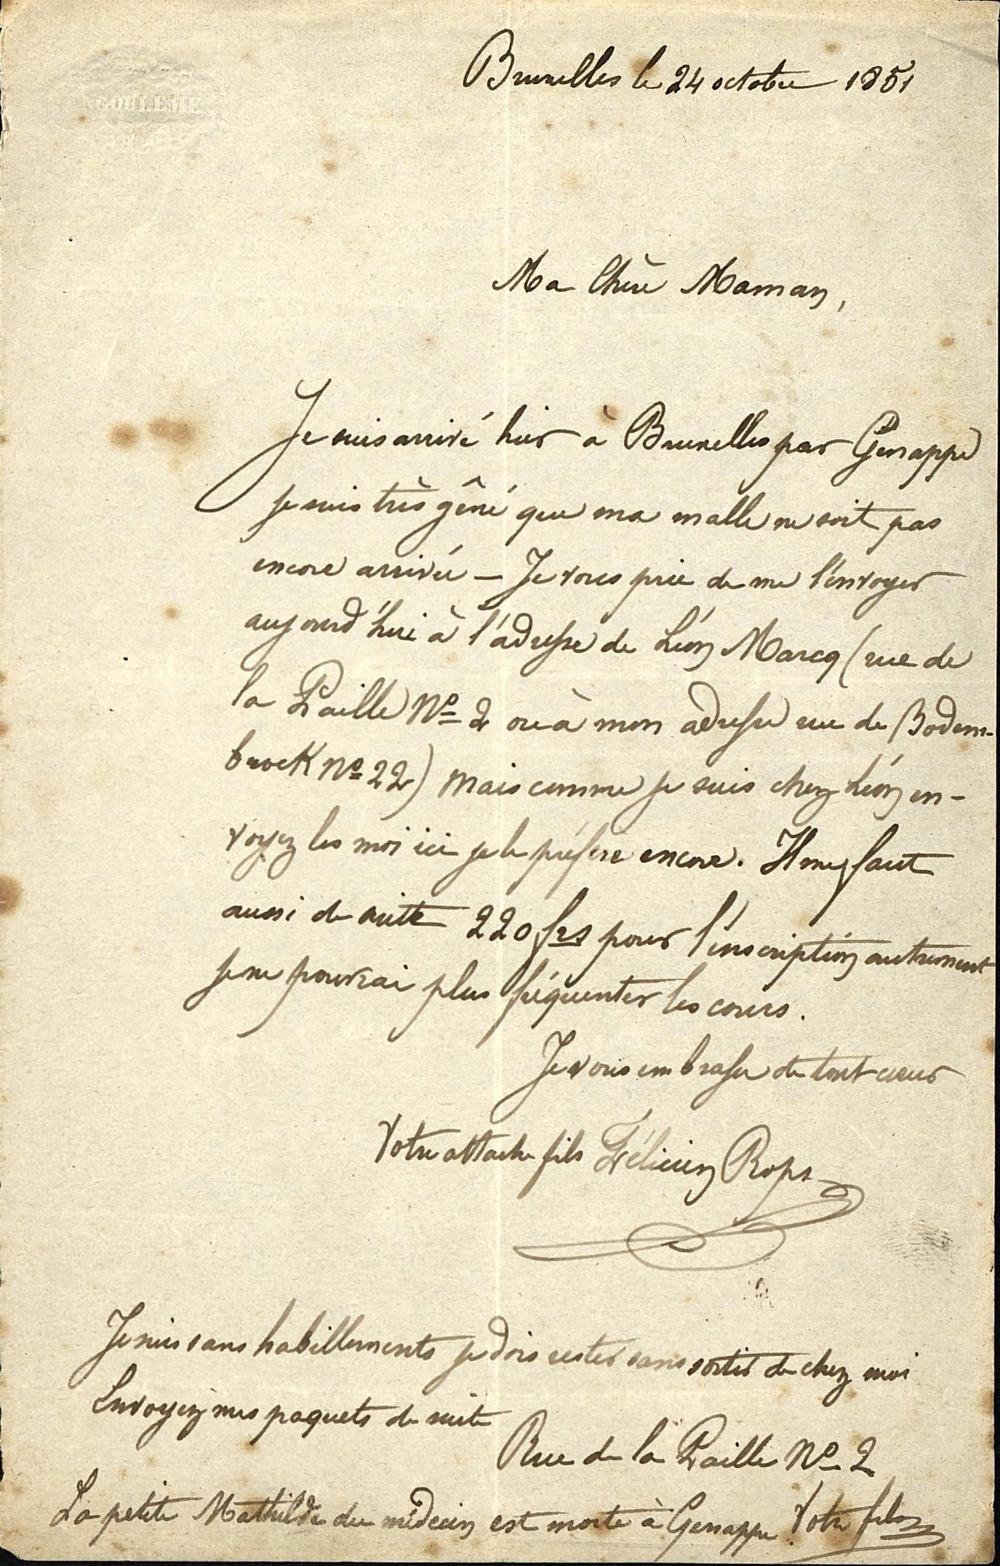 ANGOULEME
Bruxelles le 24 octobre 1851
Ma Chère Maman,
Je suis arrivé hier à Bruxelles par Genappe
je suis très gêné que ma malle ne soit pas
encore arrivée — Je vous prie de me l'envoyer
aujourd'hui à l'adresse de Léon Marcq (rue de
la Paille No 2 ou à mon adresse rue de Bodem-
broek No 22) mais comme je suis chez Léon en-
voyez les moi ici je le préfère encore. Il me faut
aussi de suite 220 frs pour l'inscription autrement
je ne pourrai plus fréquenter les cours.
Je vous embrasse de tout cœur
Votre attaché fils Félicien Rops
Je suis sans habillements je dois rester sans sortir de chez moi
Envoyez mes paquets de suite
Rue de la Paille No 2
La petite Mathilde du médecin est morte à Genappe Votre fils